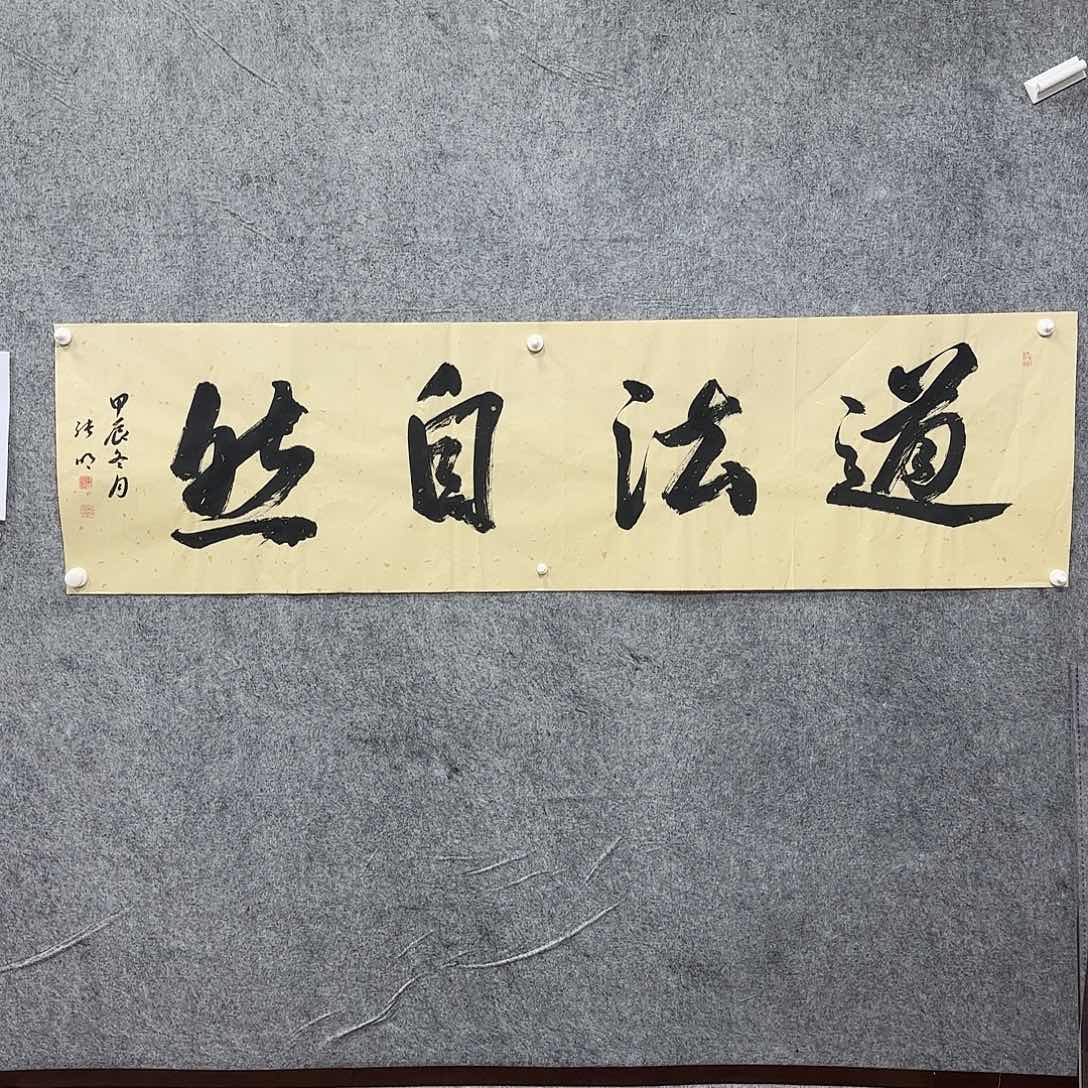 道法自然
甲辰冬月
张明